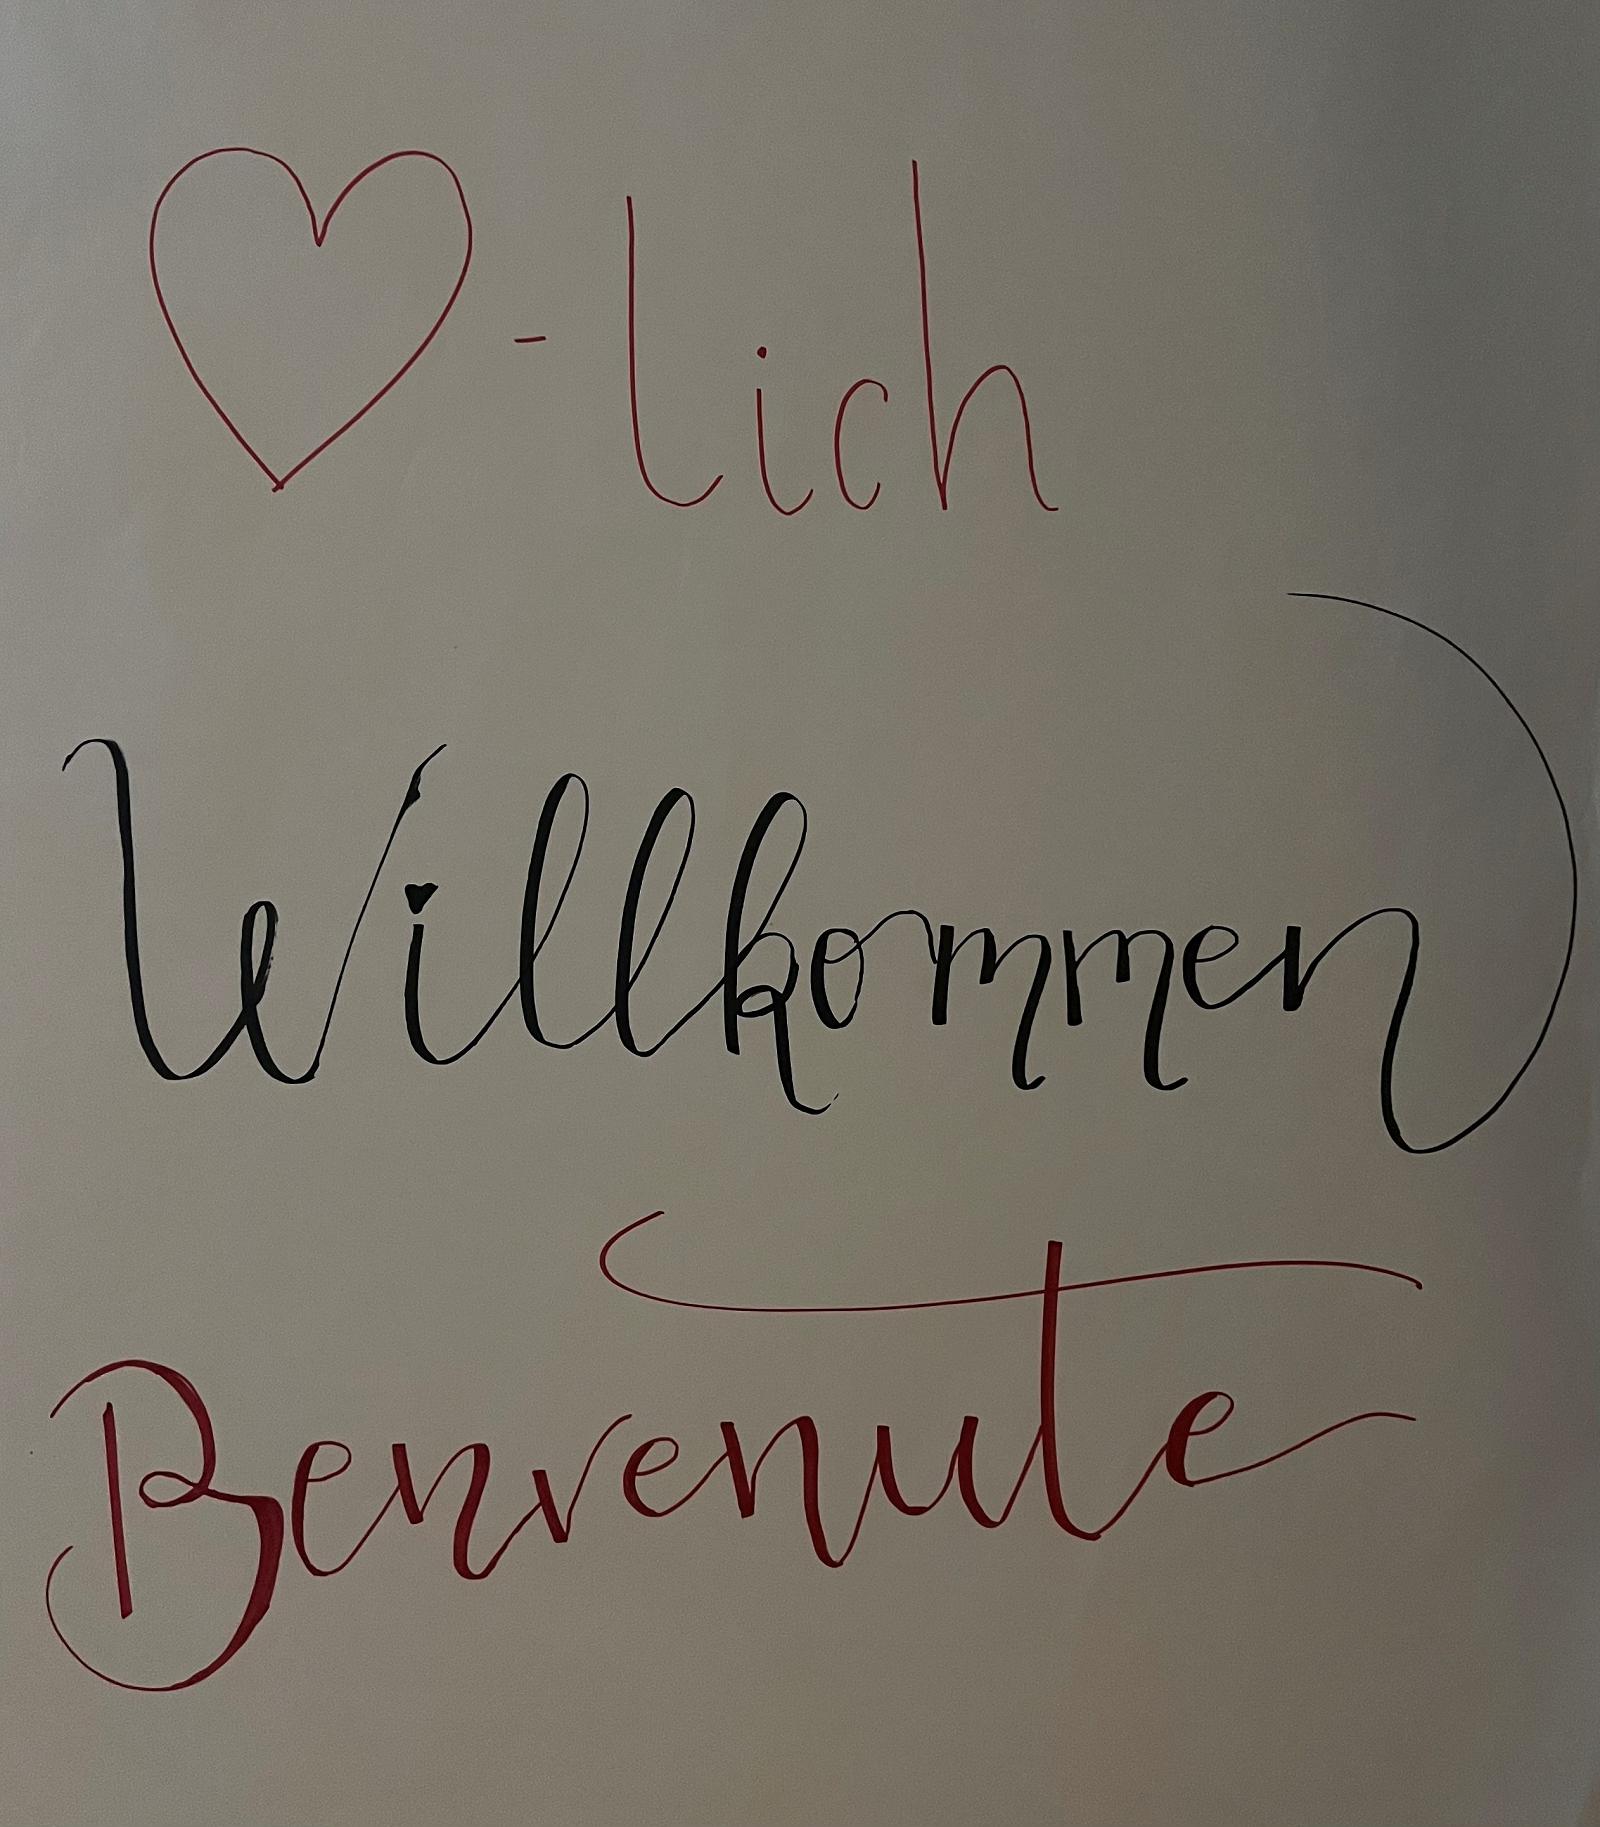 ♡-lich
Willkommen
Benvenute